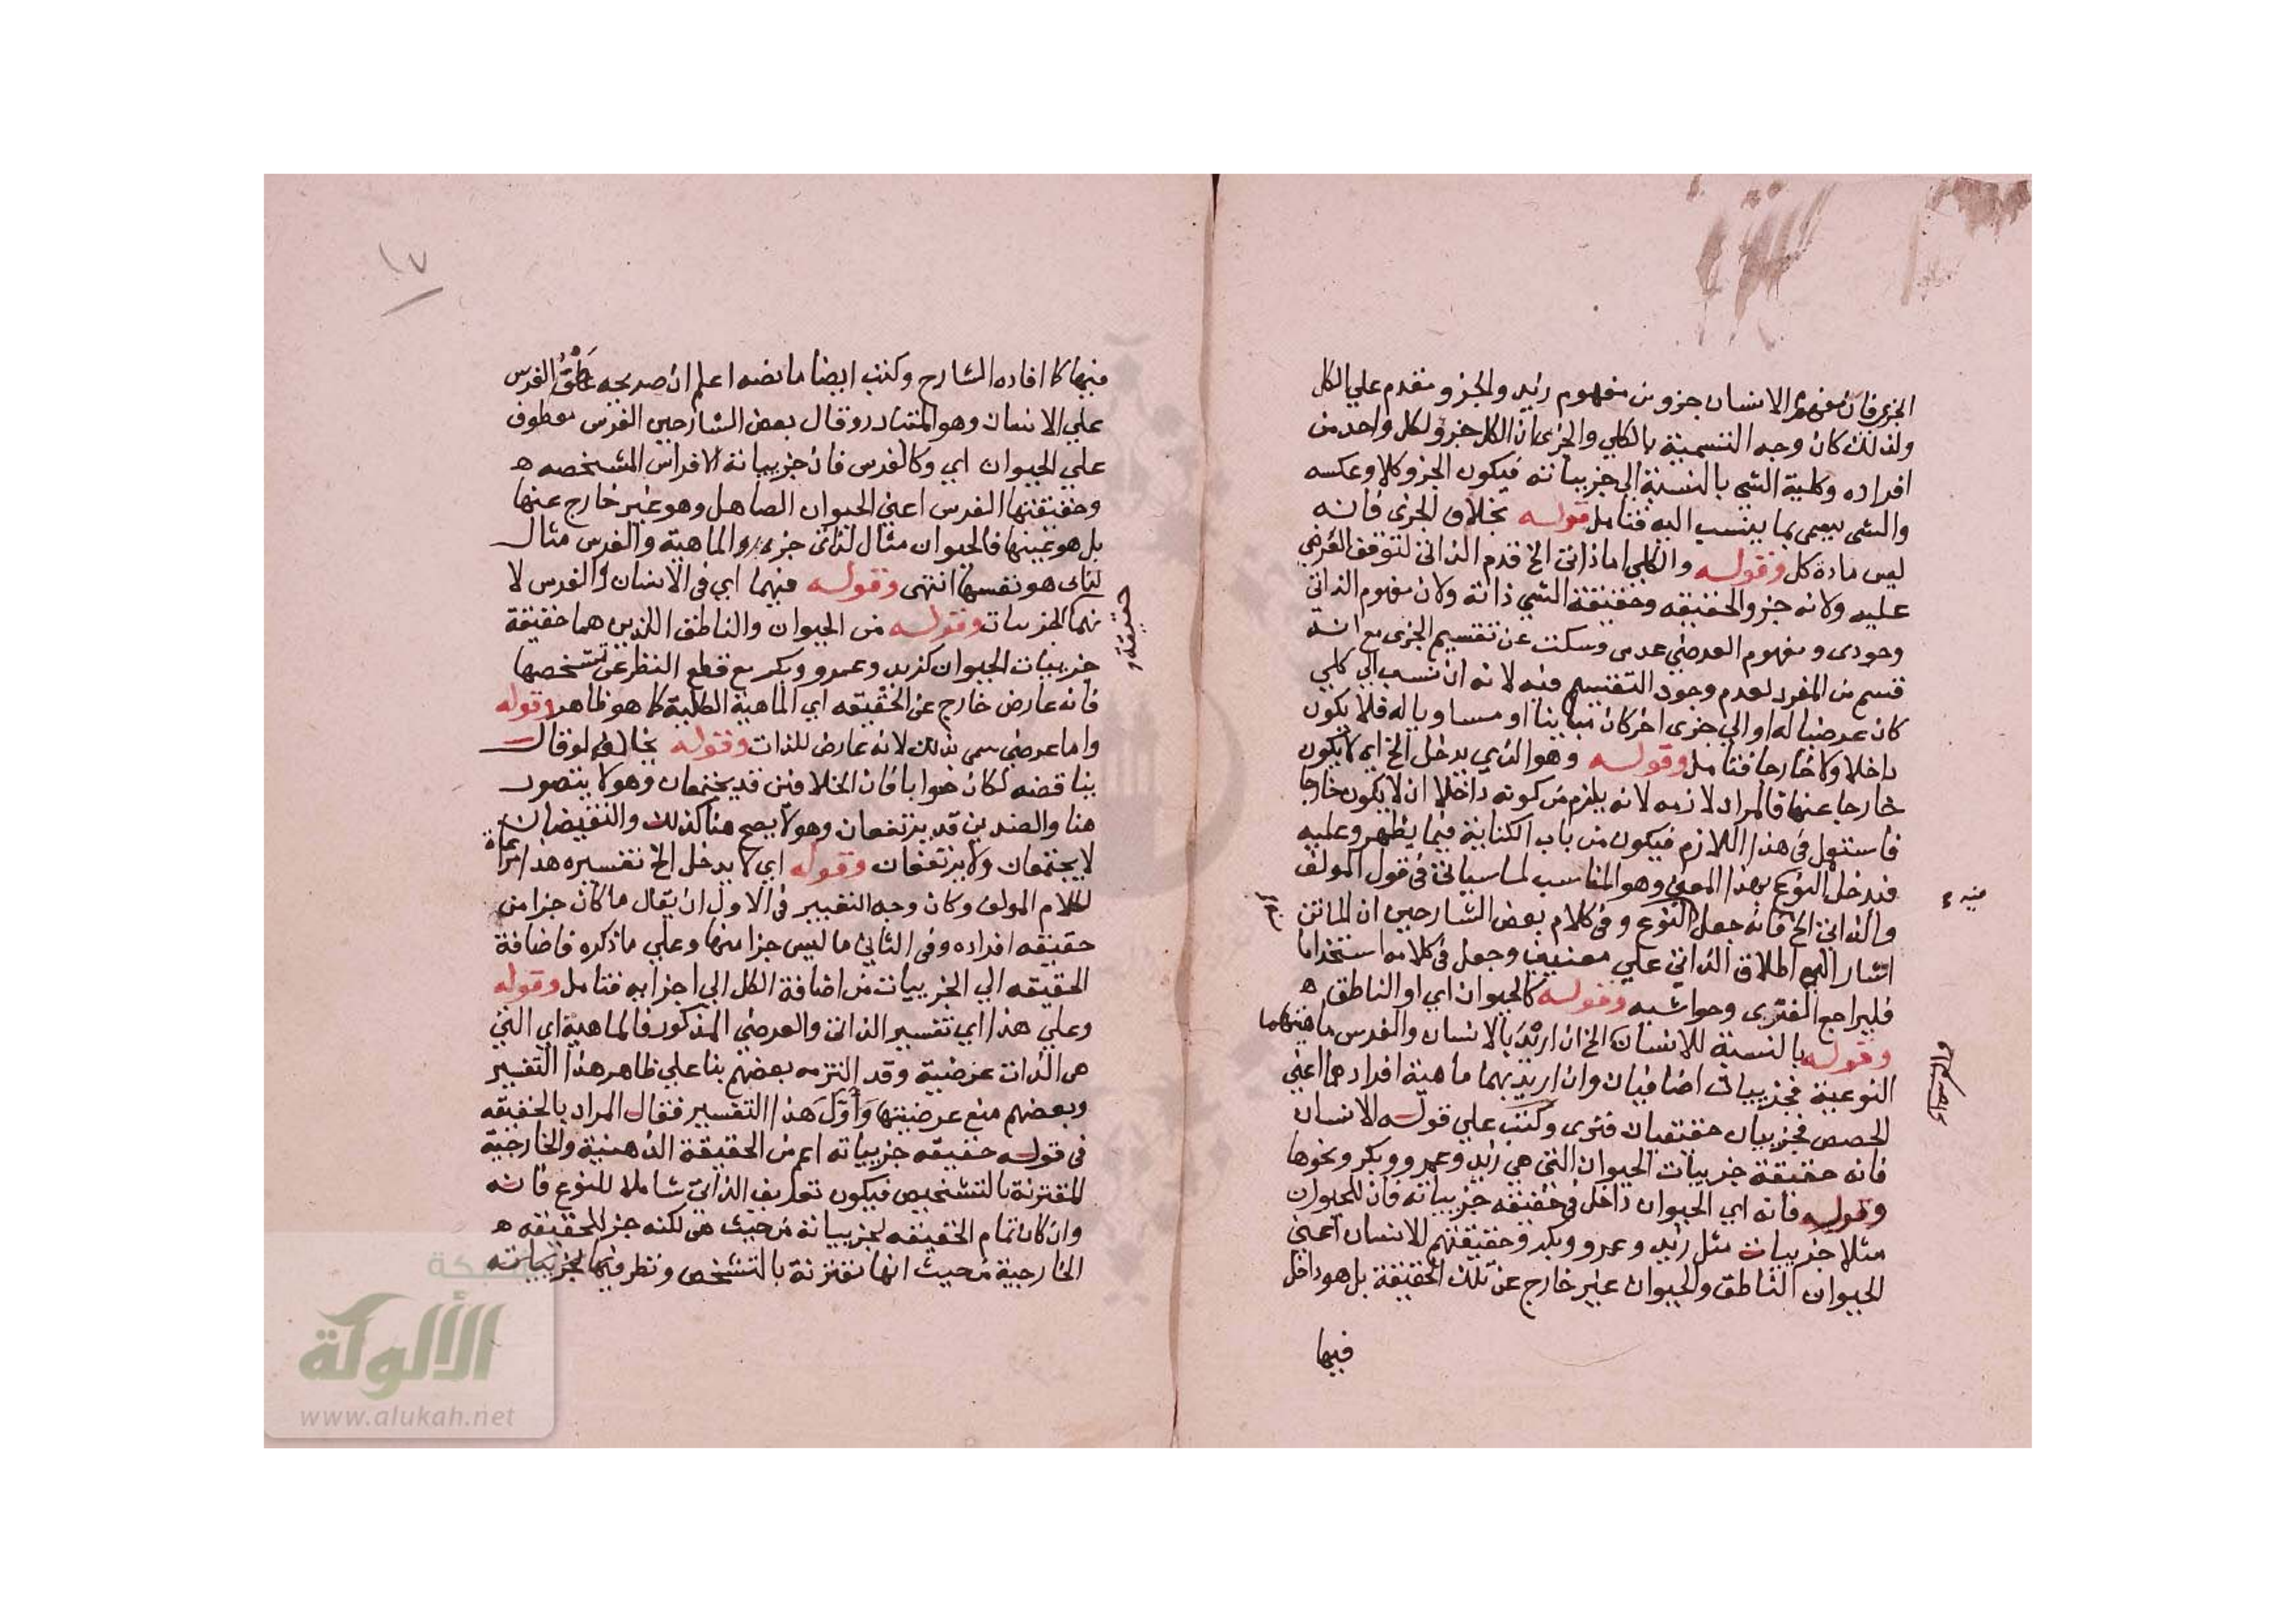 الجزى فان مفهوم الانسان جزو من مفهوم زيد والجزو مقدم علي الكل
ولذلك كان وجه التسمية بالكلي والجزى ان الكل جزو لكل واحد من
افراده وكلية الشي بالنسبة الي جزيياته فيكون الجزو كلا وعكسه
والشي يسمى بما ينسب اليه فتامل قوله بخلاف الجزى فانه
ليس مادة كل وقوله والكلي اما ذاتى الخ قدم الذاتى لتوقف العرضي
عليه ولانه جزو الحقيقه وحقيقة الشي ذاته ولان مفهوم الذاتى
وجودى ومفهوم العرضي عدمى وسكت عن تقسيم الجزى مع انه
قسم من المفرد لعدم وجود التقسيم فيه لانه ان نسب الي كلي
كان عرضيا له او الي جزى اخر كان مباينا او مساويا له فلا يكون
داخلا ولا خارجا فتامل وقوله وهو الذي يدخل الخ اي لا يكون
خارجا عنها فالمراد لازمه لانه يلزم من كونه داخلا ان لا يكون خارجا
فاستعمل فى هذا اللازم فيكون من باب الكناية فيما يظهر وعليه
فيدخل النوع بهذا المعنى وهو المناسب لما سياتى فى قول المولف
والذاتى الخ فانه جعل النوع وفى كلام بعض الشارحين ان الماتن
منه
اشار الي اطلاق الذاتى علي معنيين وجعل فى كلامه استخداما
فليراجع الفنرى وحواشيه وقوله كالحيوان اي او الناطق ه
وقوله بالنسبة للانسان الخ ان اريد بالانسان والفرس ماهيتهما
النوعية فجزييات اضافيان وان اريد بهما ماهية افرادهما اعني
الحصص فجزييان حقيقيان فنرى وكتب علي قوله الانسان
فانه حقيقة جزييات الحيوان التى هي زيد وعمرو وبكر ونحوها
وقوله فانه اي الحيوان داخل فى حقيقه جزيياته فان للحيوان
مثلا جزييات مثل زيد وعمرو وبكر وحقيقتهم الانسان اعني
الحيوان الناطق والحيوان غير خارج عن تلك الحقيقة بل هو داخل
فيها
١٧
فيها كما افاده الشارح وكتب ايضا ما نصه اعلم ان صريحه عطف الفرس
علي الانسان وهو المتبادر وقال بعض الشارحين الفرس معطوف
علي الحيوان اي وكالفرس فان جزيياته الافراس المشخصه ه
وحقيقتها الفرس اعني الحيوان الصاهل وهو غير خارج عنها
بل هو عينها فالحيوان مثال لذاتى جزء الماهية والفرس مثال
لذاتى هو نفسها انتهى وقوله فيهما اي فى الانسان والفرس لا
فى الجزييات وقوله من الحيوان والناطق اللذين هما حقيقة
حقيقة
جزييات الحيوان كزيد وعمرو وبكر مع قطع النظر عن تشخصها
فانه عارض خارج عن الحقيقه اي الماهية الكلية كما هو ظاهر وقوله
واما عرضي سمى بذلك لانه عارض للذات وقوله بخالفه لو قال
يناقضه لكان صوابا فان الخلافين قد يجتمعان وهو لا يتصور
هنا والضدين قد يرتفعان وهو لا يصح هنا كذلك والنقيضان
لا يجتمعان ولا يرتفعان وقوله اي لا يدخل الخ تفسيره هذا مراعاة
لكلام المولف وكان وجه التعبير فى الاول ان يقال ما كان جزا من
حقيقه افراده وفى الثاني ما ليس جزا منها وعلي ما ذكره فاضافة
الحقيقه الي الجزييات من اضافة الكل الي اجزايه فتامل وقوله
وعلي هذا اي تفسير الذاتى والعرضي المذكور فالماهية اي التي
هى الذات عرضية وقد التزمه بعضهم بنا علي ظاهر هذا التفسير
وبعضهم منع عرضيتها وَأَوَّلَ هذا التفسير فقال المراد بالحقيقه
فى قوله حقيقه جزيياته اعم من الحقيقة الذهنية والخارجية
المقترنة بالتشخص فيكون تعريف الذاتى شاملا للنوع فانه
وان كان تمام الحقيقه لجزيياته من حيث هى لكنه جزء للحقيقه ه
الخارجية من حيث انها مقترنة بالتشخص ونظر فيها لجزيياته
شبكة
الألوكة
www.alukah.net